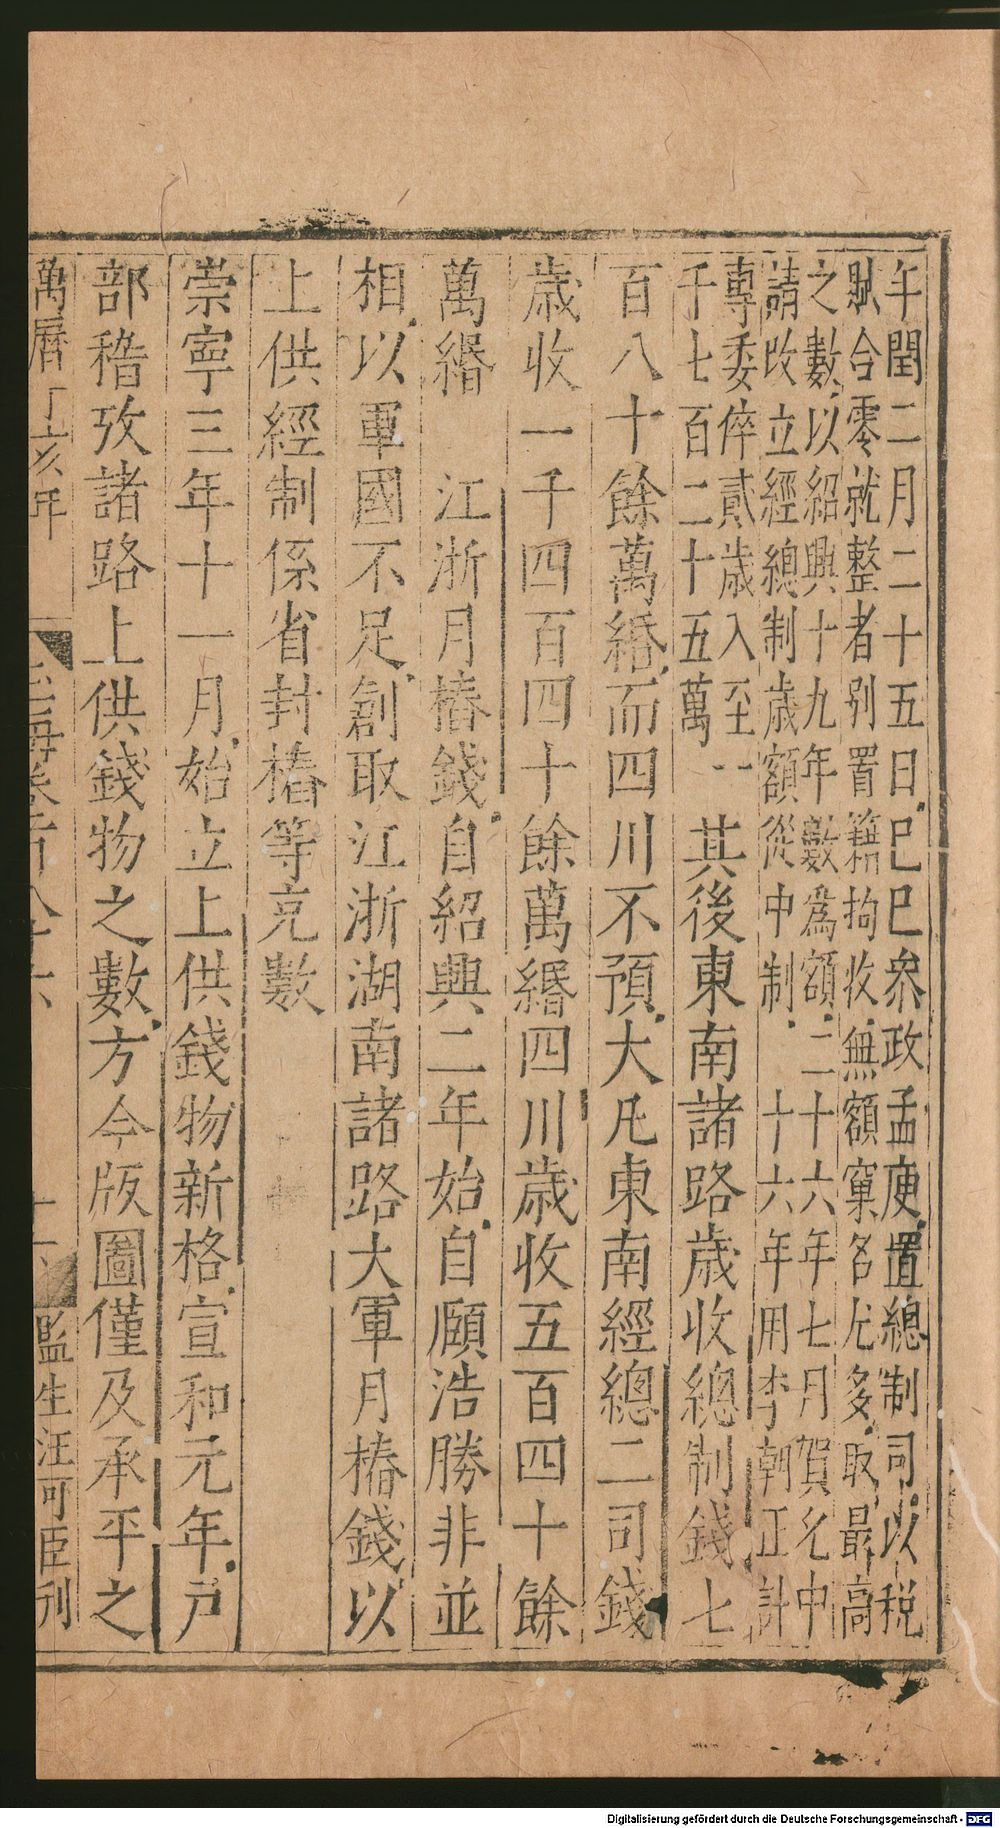 年閏二月二十五日己巳參政孟庾置總制司以稅
賦合零就整者別置籍拘收無額窠名尤多取最高
之數以紹興十九年數為額二十六年七月賀允中
請改立經總制歲額從中制十六年用李朝正計
專委倅貳歲入至一
千七百二十五萬
其後東南諸路歲收總制錢七
百八十餘萬緡而四川不預大凡東南經總二司錢
歲收一千四百四十餘萬緡四川歲收五百四十餘
萬緡 江浙月樁錢自紹興二年始自頤浩勝非並
相以軍國不足創取江浙湖南諸路大軍月樁錢以
上供經制係省封樁等充數
崇寧三年十一月始立上供錢物新格宣和元年戶
部稽攷諸路上供錢物之數方今版圖僅及承平之
萬曆丁亥年 玉海卷百八十六 監生汪可臣刊
Digitalisierung gefördert durch die Deutsche Forschungsgemeinschaft - DFG